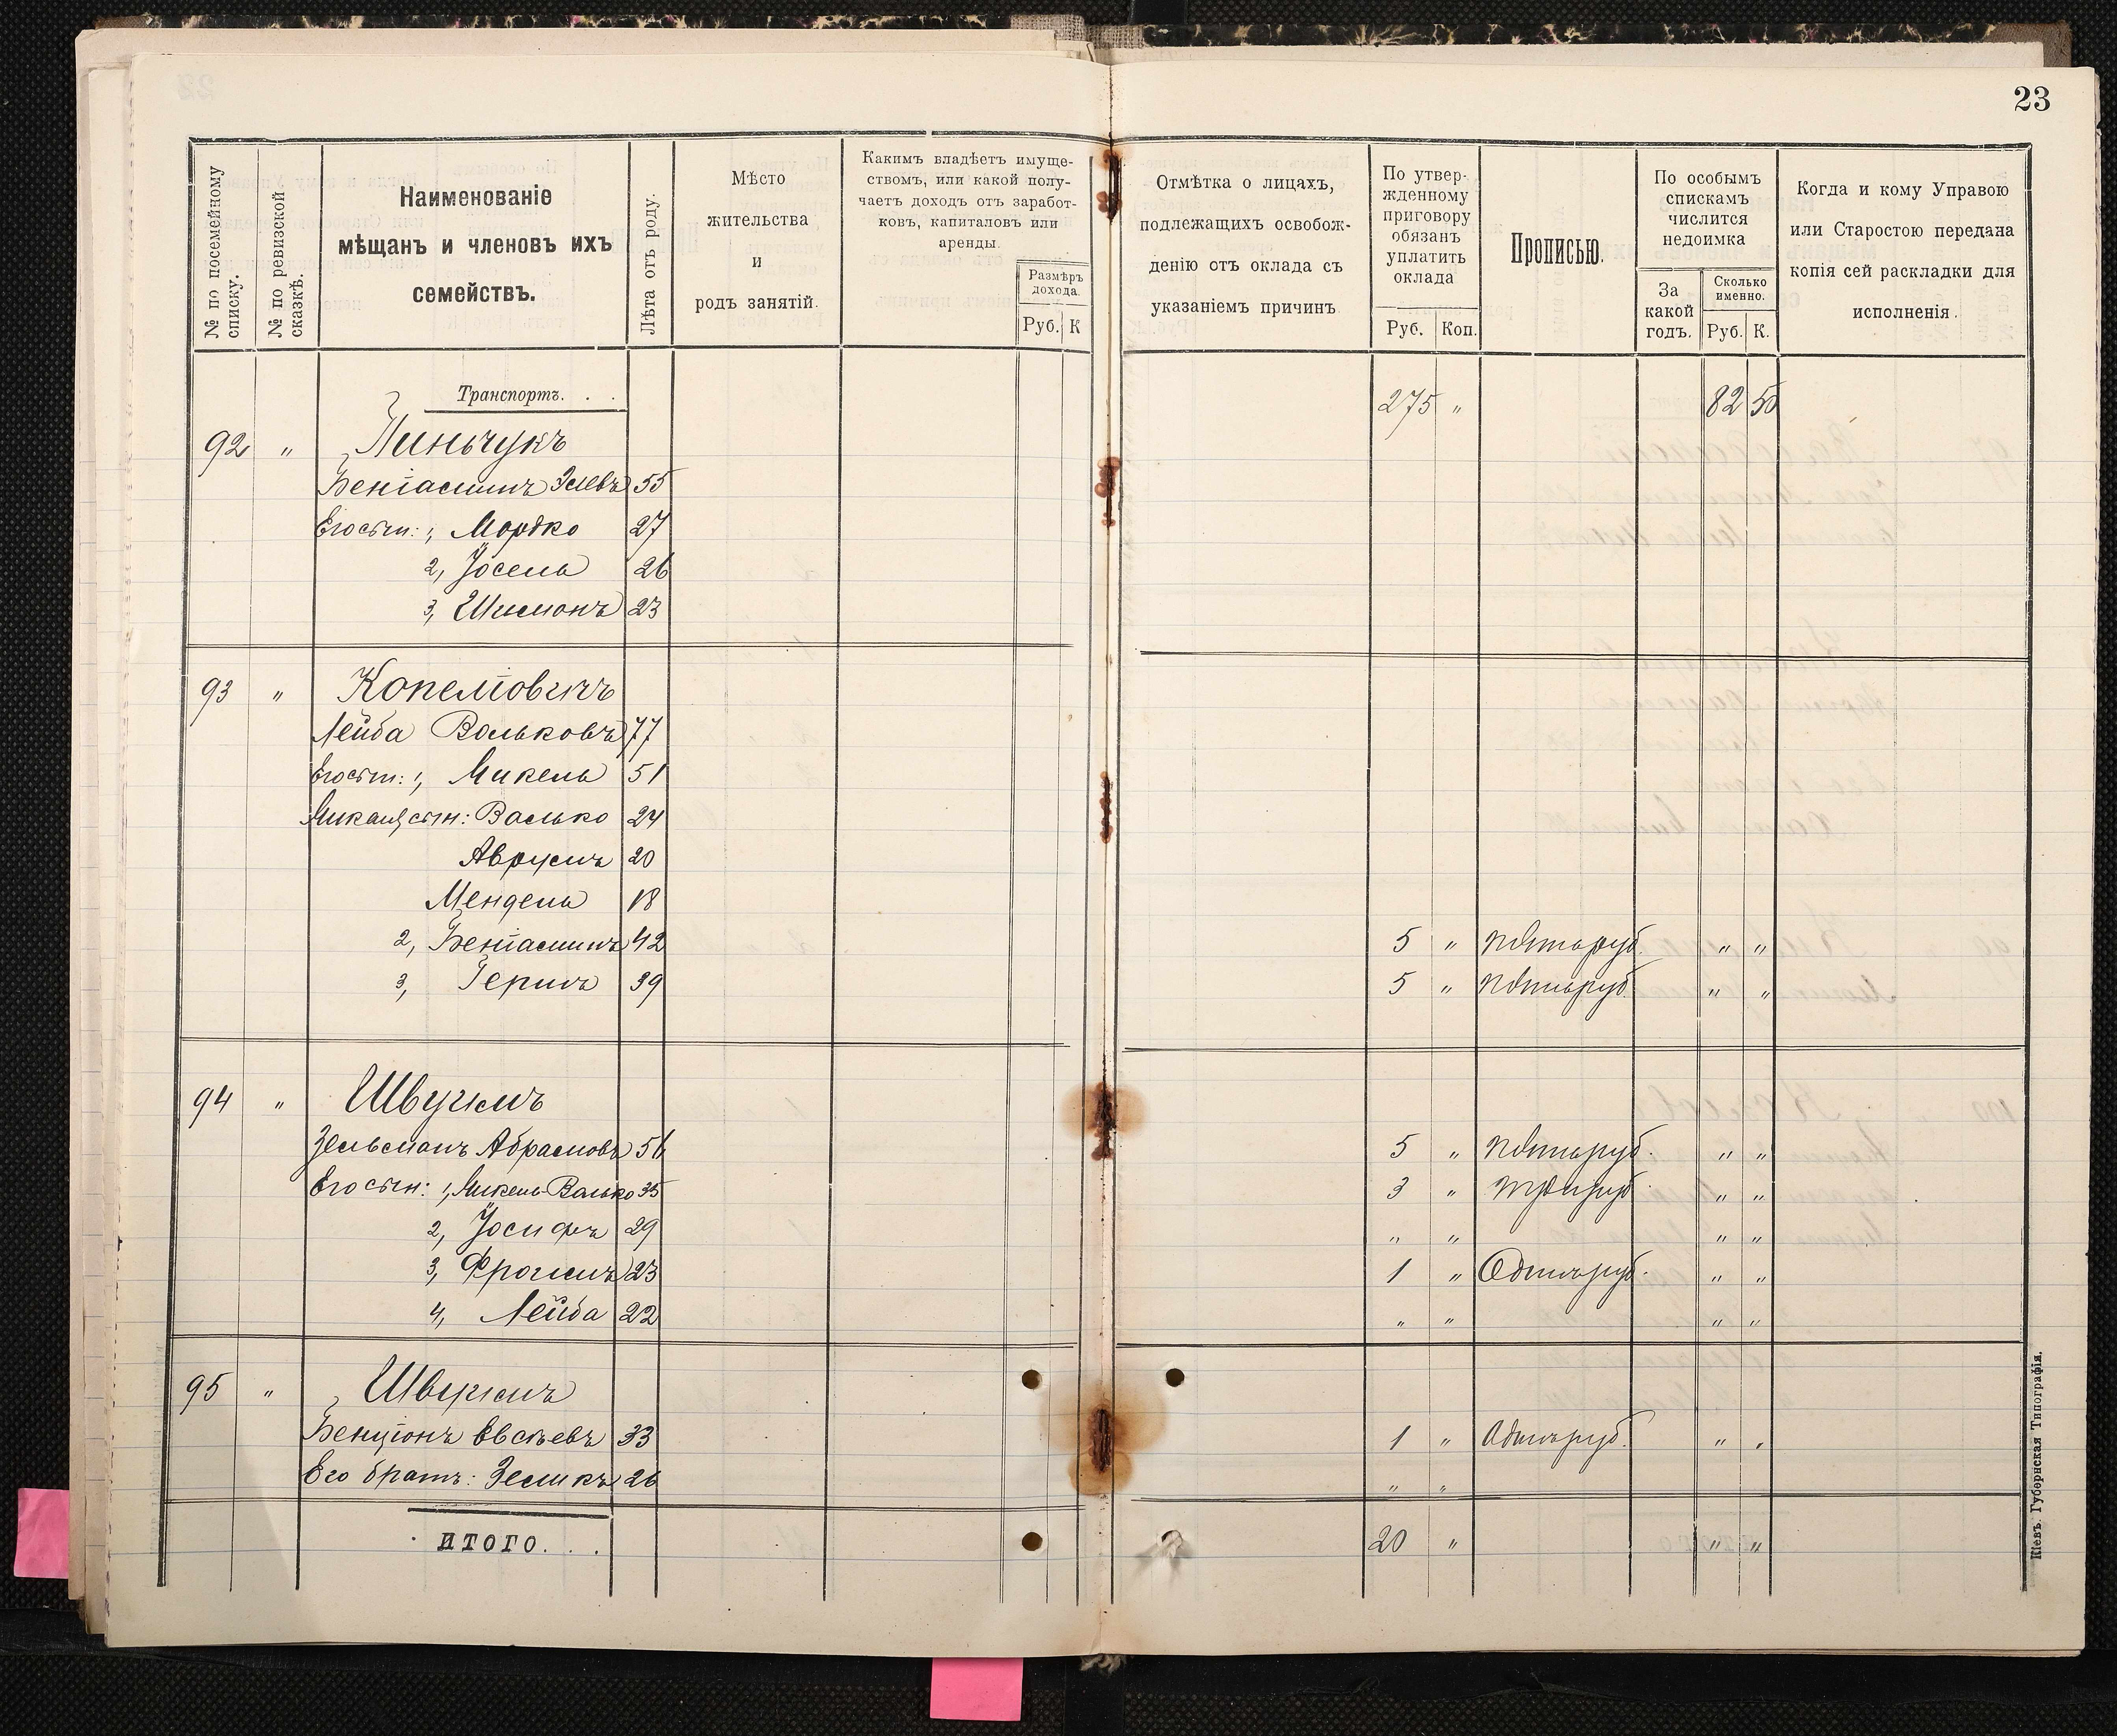 23
№ по посемейному списку.
№ по ревизской сказкѣ.
Наименованіе
мѣщанъ и членовъ ихъ
семействъ.
Лѣта отъ роду.
Мѣсто
жительства
и
родъ занятій.
Какимъ владѣетъ имуще-
ствомъ, или какой полу-
чаетъ доходъ отъ заработ-
ковъ, капиталовъ или
аренды.
Размѣръ
дохода.
Руб. К
Отмѣтка о лицахъ,
подлежащихъ освобож-
денію отъ оклада съ
указаніемъ причинъ
По утвер-
жденному
приговору
обязанъ
уплатить
оклада
Руб. Коп.
Прописью.
По особымъ
спискамъ
числится
недоимка
За
какой
годъ.
Сколько
именно.
Руб. К.
Когда и кому Управою
или Старостою передана
копія сей раскладки для
исполненія.
Транспортъ. . . 275 " 82 50
92 " Пиньчукъ
Беніаминъ Зелевъ 55
Его сын: 1, Мордко 27
2, Іосель 26
3, Шимонъ 23
93 " Копеліовичъ
Лейба Вольковъ 77
Его сын: 1, Микель 51
Микаля сын: Волько 24
Аврумъ 20
Мендель 18
2, Беніаминъ 42 5 " пять руб. " "
3, Герцъ 39 5 " пять руб. " "
94 " Швугимъ
Зельманъ Абрамовъ 56 5 " пять руб. " "
Его сын: 1, Микель-Волько 35 3 " три руб. " "
2, Іосифъ 29 " " " "
3, Фроимъ 23 1 " Одинъ руб. " "
4, Лейба 22 " " " "
95 " Швугимъ
Бенціонъ Евсѣевъ 33 1 " Одинъ руб. " "
Его братъ: Зеликъ 26 " "
ИТОГО. . . 20 " " "
Кіевъ. Губернская Типографія.